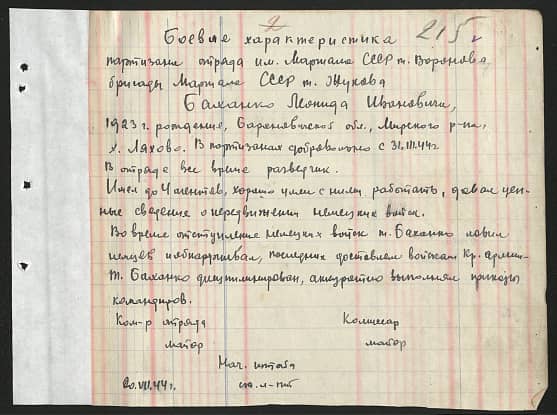 2
215
Боевые характеристика
партизана отряда им. Маршала СССР т. Воронова,
бригады Маршала СССР т. Жукова
Баханко Леонида Ивановича,
1923 г. рождения, Барановичской обл., Мирского р-на,
х. Ляхово. В партизанах добровольно с 31.III.44г.
В отряде все время разведчик.
Имел до 4 агентов, хорошо умел с ними работать, давал цен-
ные сведения о передвижении немецких войск.
Во время отступления немецких войск т. Баханко ловил
немцев и обнаруживал, последних доставлял войскам Кр. армии.
Т. Баханко дисциплинирован, аккуратно выполнял приказы
командиров.
Ком-р отряда Комиссар
майор майор
Нач. штаба
20.VII.44г. ст. л-нт